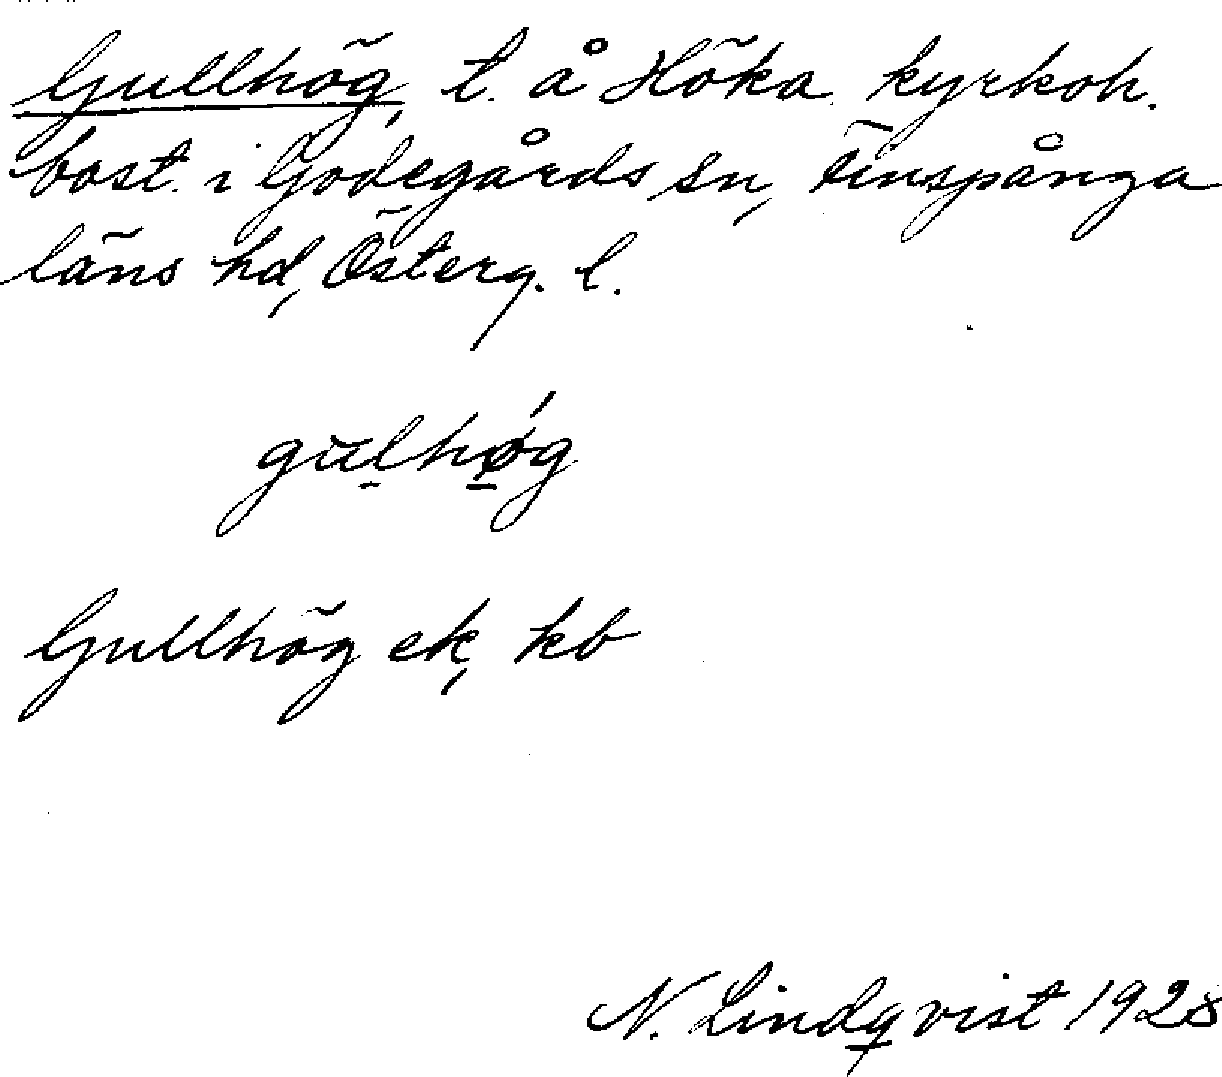 Gullhög, t. å Höka kyrkoh.
bost. i Godegårds sn, Finspånga
läns hd, Österg. l.
gulhǿg
Gullhög ek, kb
N. Lindqvist 1928